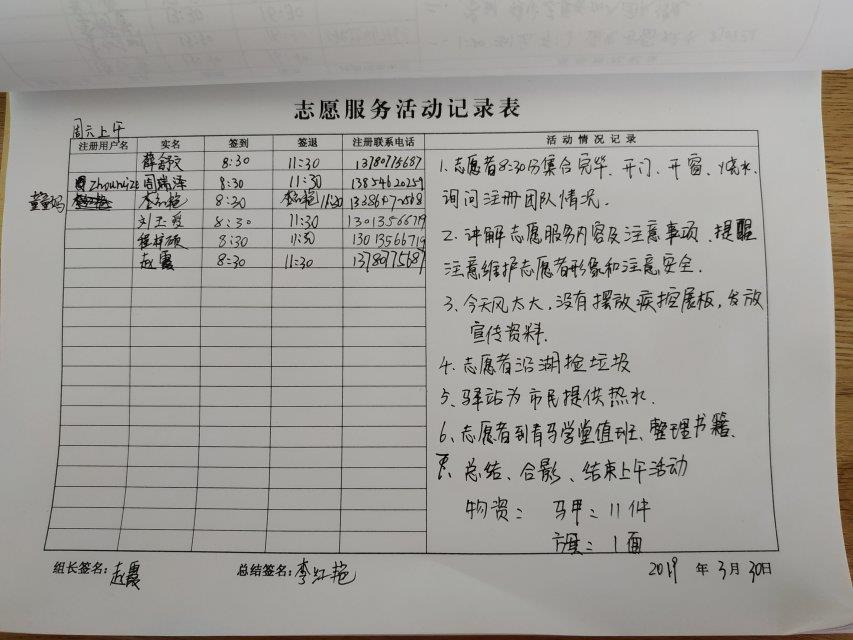 志愿服务活动记录表
周六上午
注册用户名 实名 签到 签退 注册联系电话 活动情况记录
薛舒文 8:30 11:30 13780715687
周瑞泽 8:30 11:30 13854620259
8:30 11:30
刘玉爱 8:30 11:30 13013566719
8:30 11:30 13013566719
赵霞 8:30 11:30 13780715687
1. 志愿者8:30分集合完毕、开门、开窗、烧水、
询问注册团队情况.
2. 讲解志愿服务内容及注意事项、提醒
注意维护志愿者形象和注意安全.
3. 今天风太大,没有摆放疾控展板,发放
宣传资料.
4. 志愿者沿湖捡垃圾
5、驿站为市民提供热水.
6、志愿者到青马学堂值班、整理书籍.
7. 总结、合影、结束上午活动
物资: 马甲:11件
1面
组长签名:赵霞 总结签名:李红艳 2019年3月30日